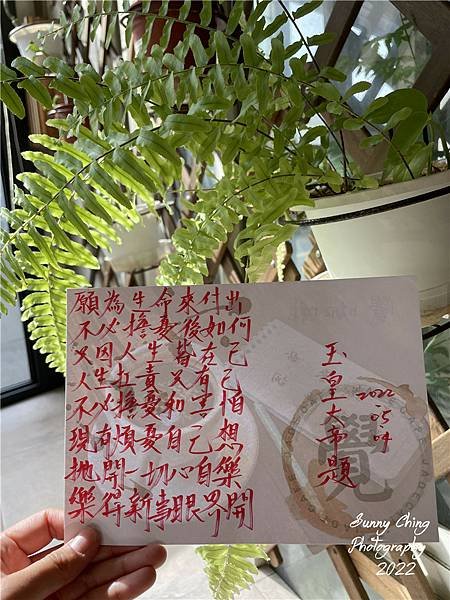 願為生命來付出
不必擔憂後如何
只因人生皆在己
人生扛責只有己
不必擔憂和害怕
現有煩憂自己想
拋開一切心自樂
樂得新事眼界開
玉皇大帝題
2022
05
04
覺
Sunny Ching
Photography
2022